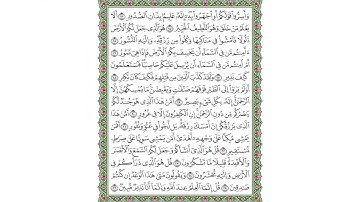 وَأَسِرُّوا۟ قَوْلَكُمْ أَوِ ٱجْهَرُوا۟ بِهِۦٓ إِنَّهُۥ عَلِيمٌۢ بِذَاتِ ٱلصُّدُورِ ۝١٣ أَلَا
يَعْلَمُ مَنْ خَلَقَ وَهُوَ ٱللَّطِيفُ ٱلْخَبِيرُ ۝١٤ هُوَ ٱلَّذِى جَعَلَ لَكُمُ ٱلْأَرْضَ
ذَلُولًا فَٱمْشُوا۟ فِى مَنَاكِبِهَا وَكُلُوا۟ مِن رِّزْقِهِۦ وَإِلَيْهِ ٱلنُّشُورُ ۝١٥
ءَأَمِنتُم مَّن فِى ٱلسَّمَآءِ أَن يَخْسِفَ بِكُمُ ٱلْأَرْضَ فَإِذَا هِىَ تَمُورُ ۝١٦
أَمْ أَمِنتُم مَّن فِى ٱلسَّمَآءِ أَن يُرْسِلَ عَلَيْكُمْ حَاصِبًا فَسَتَعْلَمُونَ
كَيْفَ نَذِيرِ ۝١٧ وَلَقَدْ كَذَّبَ ٱلَّذِينَ مِن قَبْلِهِمْ فَكَيْفَ كَانَ نَكِيرِ ۝١٨
أَوَلَمْ يَرَوْا۟ إِلَى ٱلطَّيْرِ فَوْقَهُمْ صَٰٓفَّٰتٍ وَيَقْبِضْنَ مَا يُمْسِكُهُنَّ إِلَّا
ٱلرَّحْمَٰنُ إِنَّهُۥ بِكُلِّ شَىْءٍۭ بَصِيرٌ ۝١٩ أَمَّنْ هَٰذَا ٱلَّذِى هُوَ جُندٌ لَّكُمْ
يَنصُرُكُم مِّن دُونِ ٱلرَّحْمَٰنِ إِنِ ٱلْكَٰفِرُونَ إِلَّا فِى غُرُورٍ ۝٢٠ أَمَّنْ
هَٰذَا ٱلَّذِى يَرْزُقُكُمْ إِنْ أَمْسَكَ رِزْقَهُۥ بَل لَّجُّوا۟ فِى عُتُوٍّ وَنُفُورٍ ۝٢١
أَفَمَن يَمْشِى مُكِبًّا عَلَىٰ وَجْهِهِۦٓ أَهْدَىٰٓ أَمَّن يَمْشِى سَوِيًّا عَلَىٰ صِرَٰطٍ
مُّسْتَقِيمٍ ۝٢٢ قُلْ هُوَ ٱلَّذِىٓ أَنشَأَكُمْ وَجَعَلَ لَكُمُ ٱلسَّمْعَ وَٱلْأَبْصَٰرَ
وَٱلْأَفْـِٔدَةَ قَلِيلًا مَّا تَشْكُرُونَ ۝٢٣ قُلْ هُوَ ٱلَّذِى ذَرَأَكُمْ فِى
ٱلْأَرْضِ وَإِلَيْهِ تُحْشَرُونَ ۝٢٤ وَيَقُولُونَ مَتَىٰ هَٰذَا ٱلْوَعْدُ إِن كُنتُمْ
صَٰدِقِينَ ۝٢٥ قُلْ إِنَّمَا ٱلْعِلْمُ عِندَ ٱللَّهِ وَإِنَّمَآ أَنَا۠ نَذِيرٌ مُّبِينٌ ۝٢٦